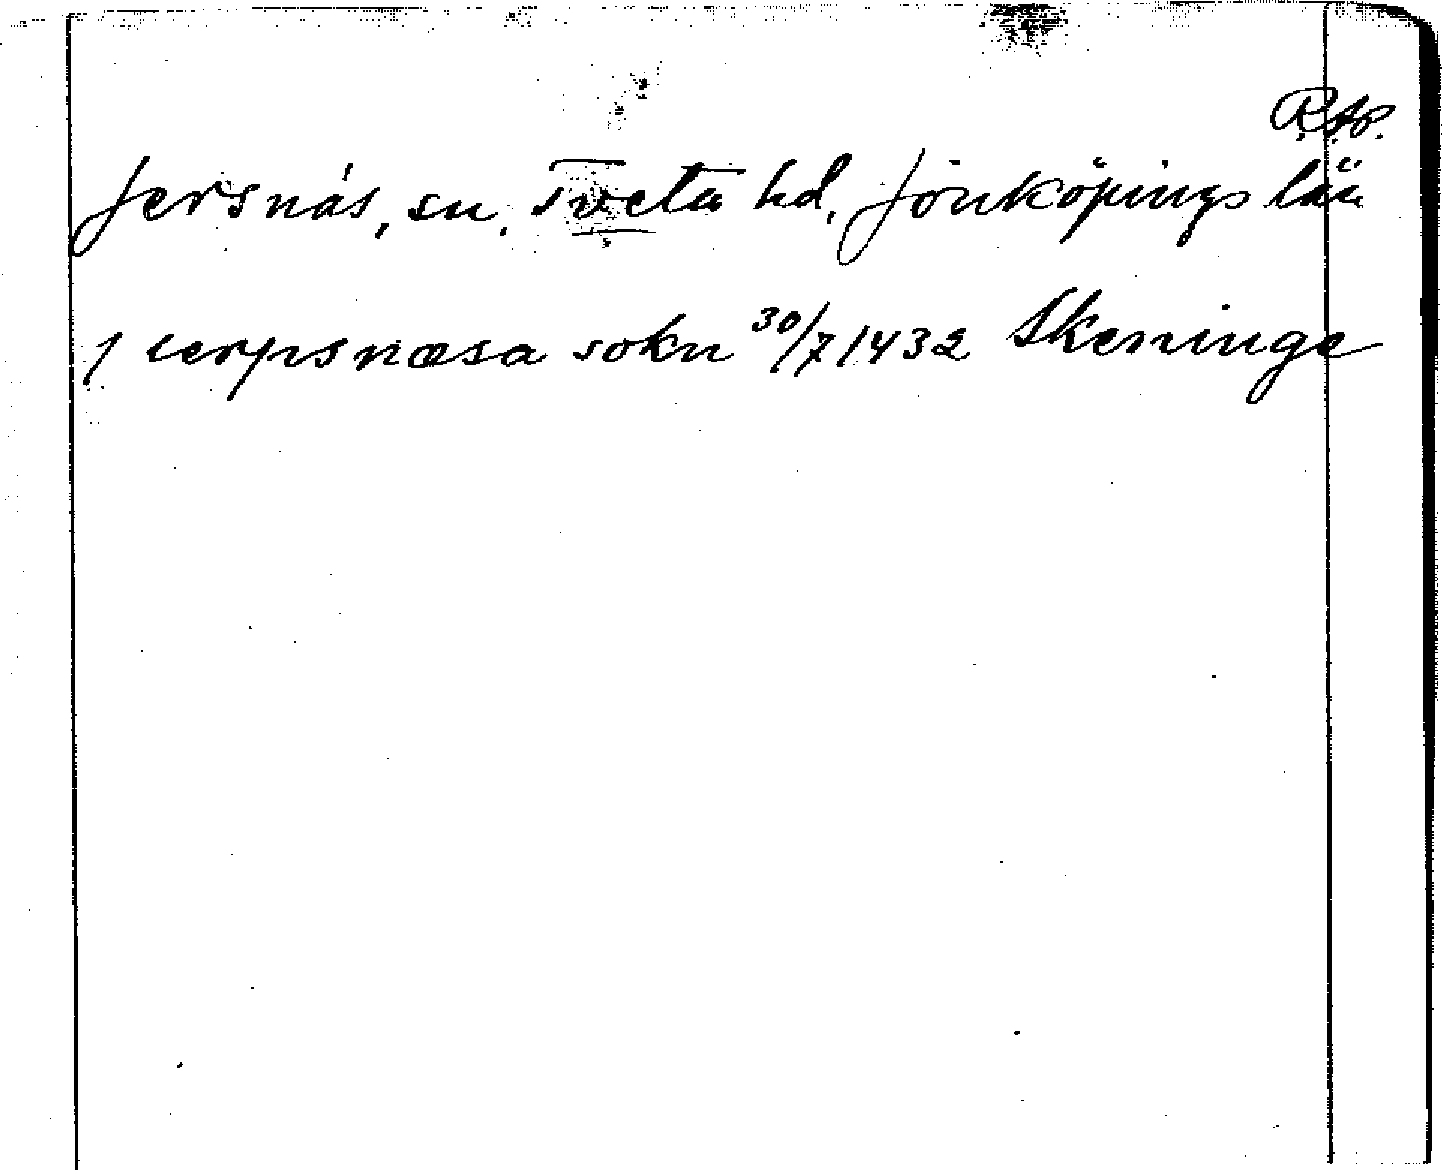 R.A.P.
Jersnäs, sn. Tveta hd, Jönköpings län
j ierpsnæsa sokn 30/7 1432 Skeninge